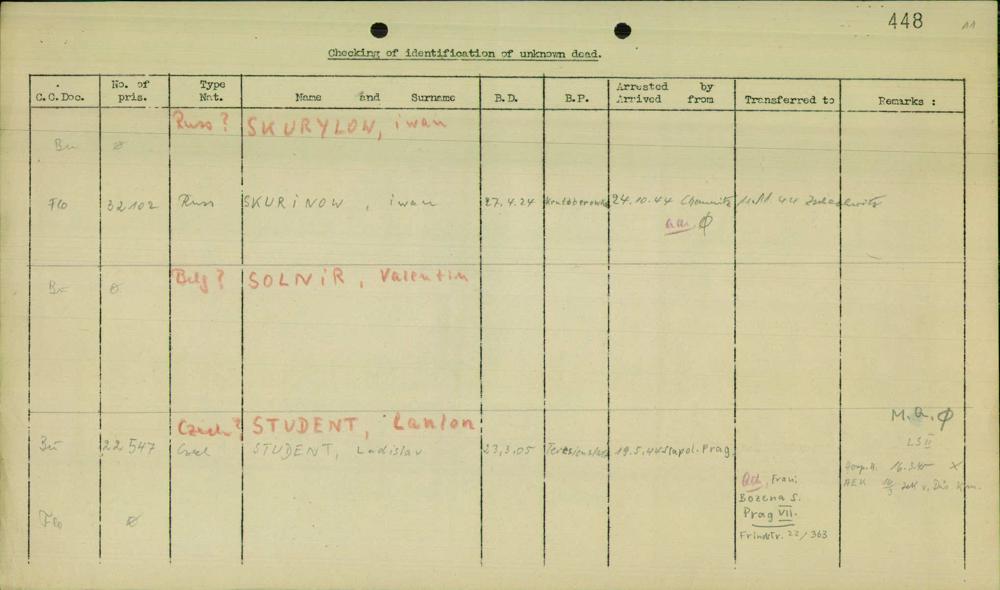 448
Checking of identification of unknown dead.
C.C.Doc. No. of pris. Type Nat. Name and Surname B.D. B.P. Arrested by Arrived from Transferred to Remarks :
Russ? SKURYLOW, iwan
Bu ø
Flo 32102 Russ SKURiNOW, iwan 27.4.24 24.10.44 Chemnitz 11.11.44
Φ
Belg? SOLNiR, Valentin
Bu ø
Czech? STUDENT,
M.a. Φ
Bu 22547 Czech STUDENT, Ladislav 23.3.05 19.5.44 Stapol. Prag
LS II
Frau:
Bozena S.
Prag VII.
22/363
Flo ø